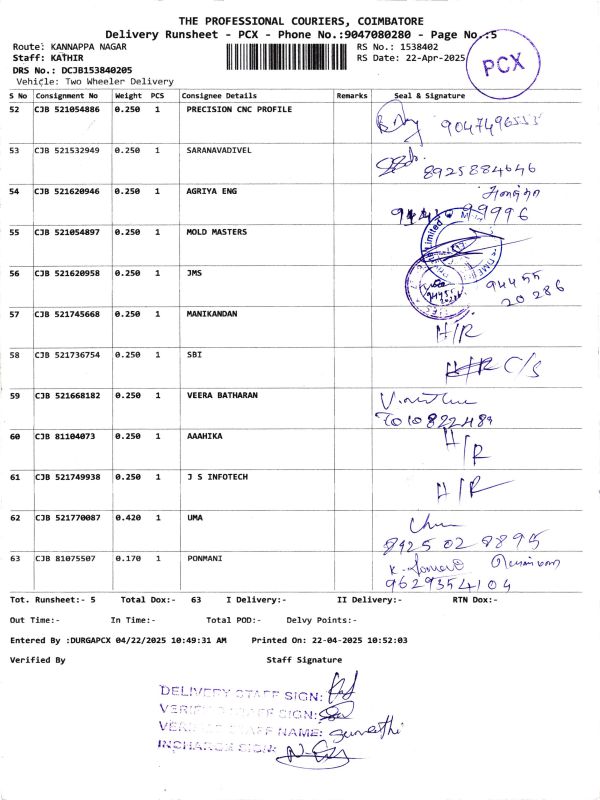 THE PROFESSIONAL COURIERS, COIMBATORE
Delivery Runsheet - PCX - Phone No.:9047080280 - Page No.:5
Route: KANNAPPA NAGAR RS No.: 1538402
Staff: KATHIR RS Date: 22-Apr-2025
PCX
DRS No.: DCJB153840205
Vehicle: Two Wheeler Delivery
S No Consignment No Weight PCS Consignee Details Remarks Seal & Signature
52 CJB 521054886 0.250 1 PRECISION CNC PROFILE
53 CJB 521532949 0.250 1 SARANAVADIVEL 8925884646
54 CJB 521620946 0.250 1 AGRIYA ENG
55 CJB 521054897 0.250 1 MOLD MASTERS
56 CJB 521620958 0.250 1 JMS 94455 20286
57 CJB 521745668 0.250 1 MANIKANDAN H/R
58 CJB 521736754 0.250 1 SBI H/R C/S
59 CJB 521668182 0.250 1 VEERA BATHARAN
60 CJB 81104073 0.250 1 AAAHIKA H/R
61 CJB 521749938 0.250 1 J S INFOTECH H/R
62 CJB 521770087 0.420 1 UMA 8925028895
63 CJB 81075507 0.170 1 PONMANI 9629354104
Tot. Runsheet:- 5 Total Dox:- 63 I Delivery:- II Delivery:- RTN Dox:-
Out Time:- In Time:- Total POD:- Delvy Points:-
Entered By :DURGAPCX 04/22/2025 10:49:31 AM Printed On: 22-04-2025 10:52:03
Verified By Staff Signature
DELIVERY STAFF SIGN:
VERIFIED STAFF SIGN:
VERIFIED STAFF NAME:
INCHARGE SIGN: